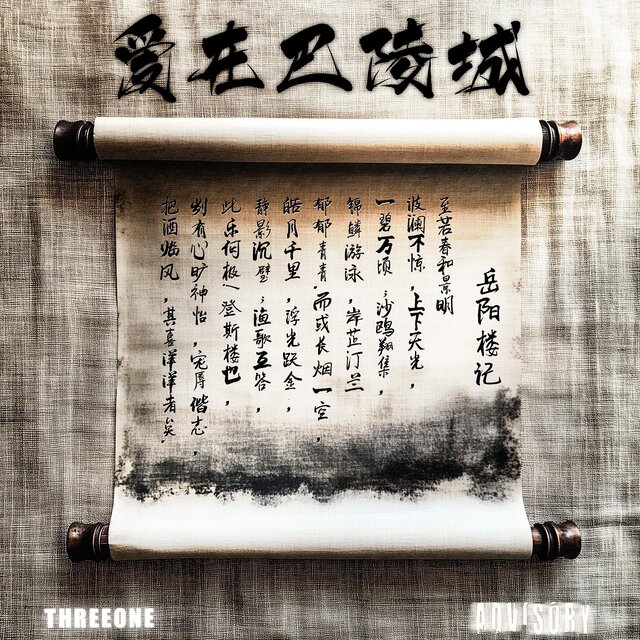 爱在巴陵城
岳阳楼记
至若春和景明
波澜不惊，上下天光，
一碧万顷；沙鸥翔集，
锦鳞游泳，岸芷汀兰
郁郁青青。而或长烟一空，
皓月千里，浮光跃金，
静影沉璧；渔歌互答，
此乐何极！登斯楼也，
则有心旷神怡，宠辱偕志，
把酒临风，其喜洋洋者矣。
THREEONE
ADVISORY